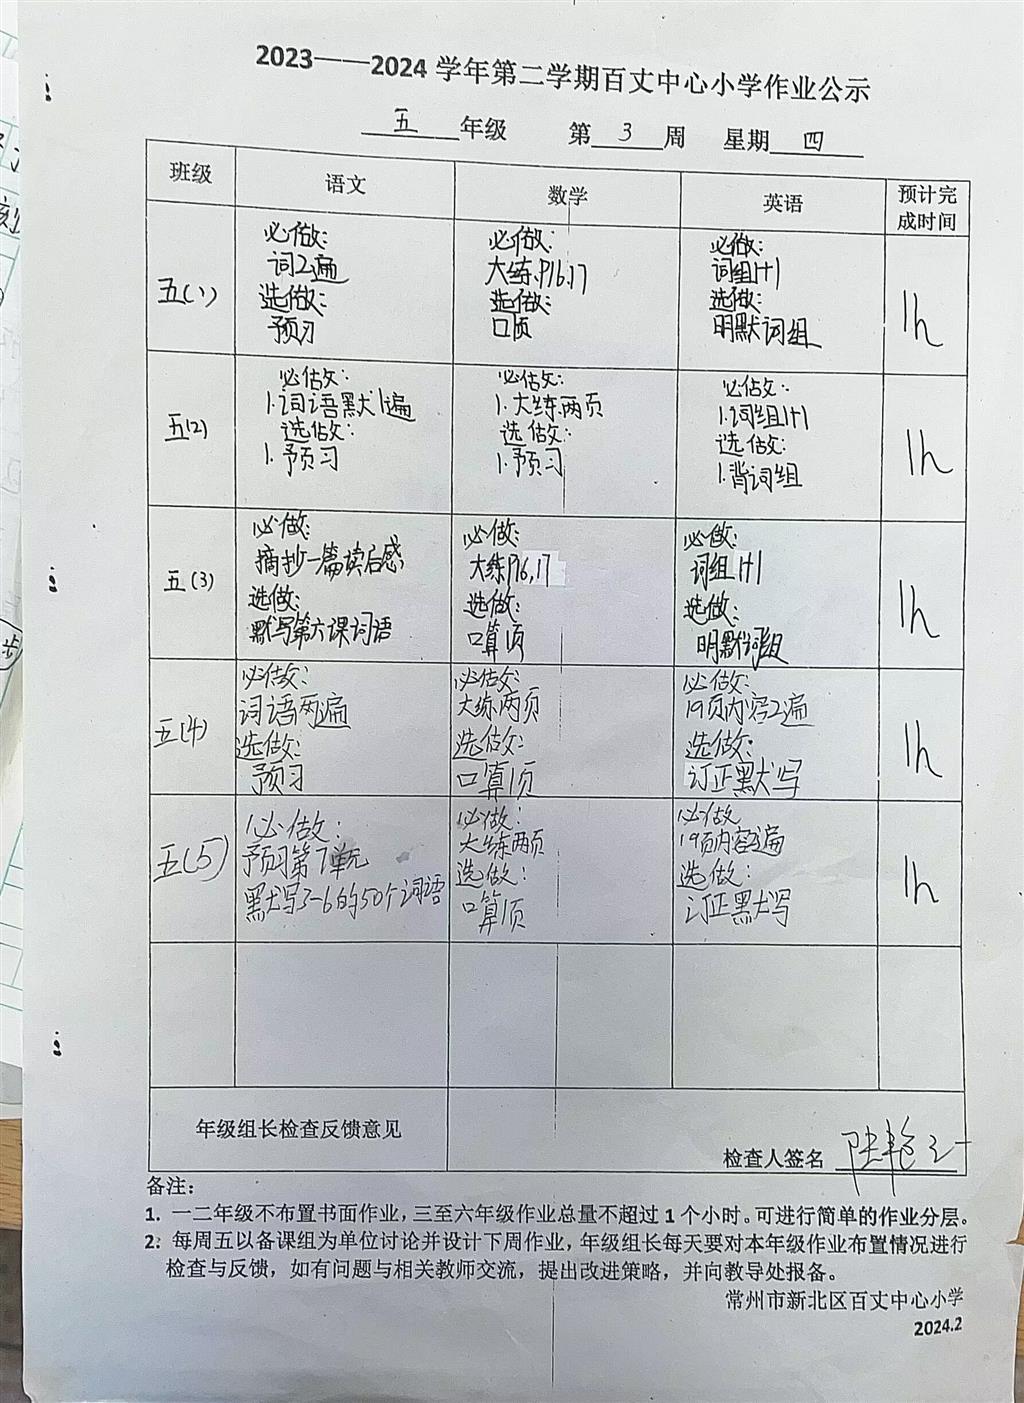 2023——2024 学年第二学期百丈中心小学作业公示
五 年级 第 3 周 星期 四
班级 语文 数学 英语 预计完成时间
五(1)
必做:
词2遍
选做:
预习
必做:
大练P16,17
选做:
口1页
必做:
词组1+1
选做:
明默词组
1h
五(2)
必做:
1.词语默1遍
选做:
1.预习
必做:
1.大练两页
选做:
1.预习
必做:
1.词组1+1
选做:
1.背词组
1h
五(3)
必做:
摘抄一篇读后感
选做:
默写第六课词语
必做:
大练P16,17
选做:
口算1页
必做:
词组1+1
选做:
明默词组
1h
五(4)
必做:
词语两遍
选做:
预习
必做:
大练两页
选做:
口算1页
必做:
19页内容2遍
选做:
订正默写
1h
五(5)
必做:
预习第7单元
默写3-6的50个词语
必做:
大练两页
选做:
口算1页
必做
19页内容3遍
选做:
订正默写
1h
年级组长检查反馈意见
检查人签名
备注:
1. 一二年级不布置书面作业,三至六年级作业总量不超过 1 个小时。可进行简单的作业分层。
2: 每周五以备课组为单位讨论并设计下周作业,年级组长每天要对本年级作业布置情况进行
检查与反馈,如有问题与相关教师交流,提出改进策略,并向教导处报备。
常州市新北区百丈中心小学
2024.2